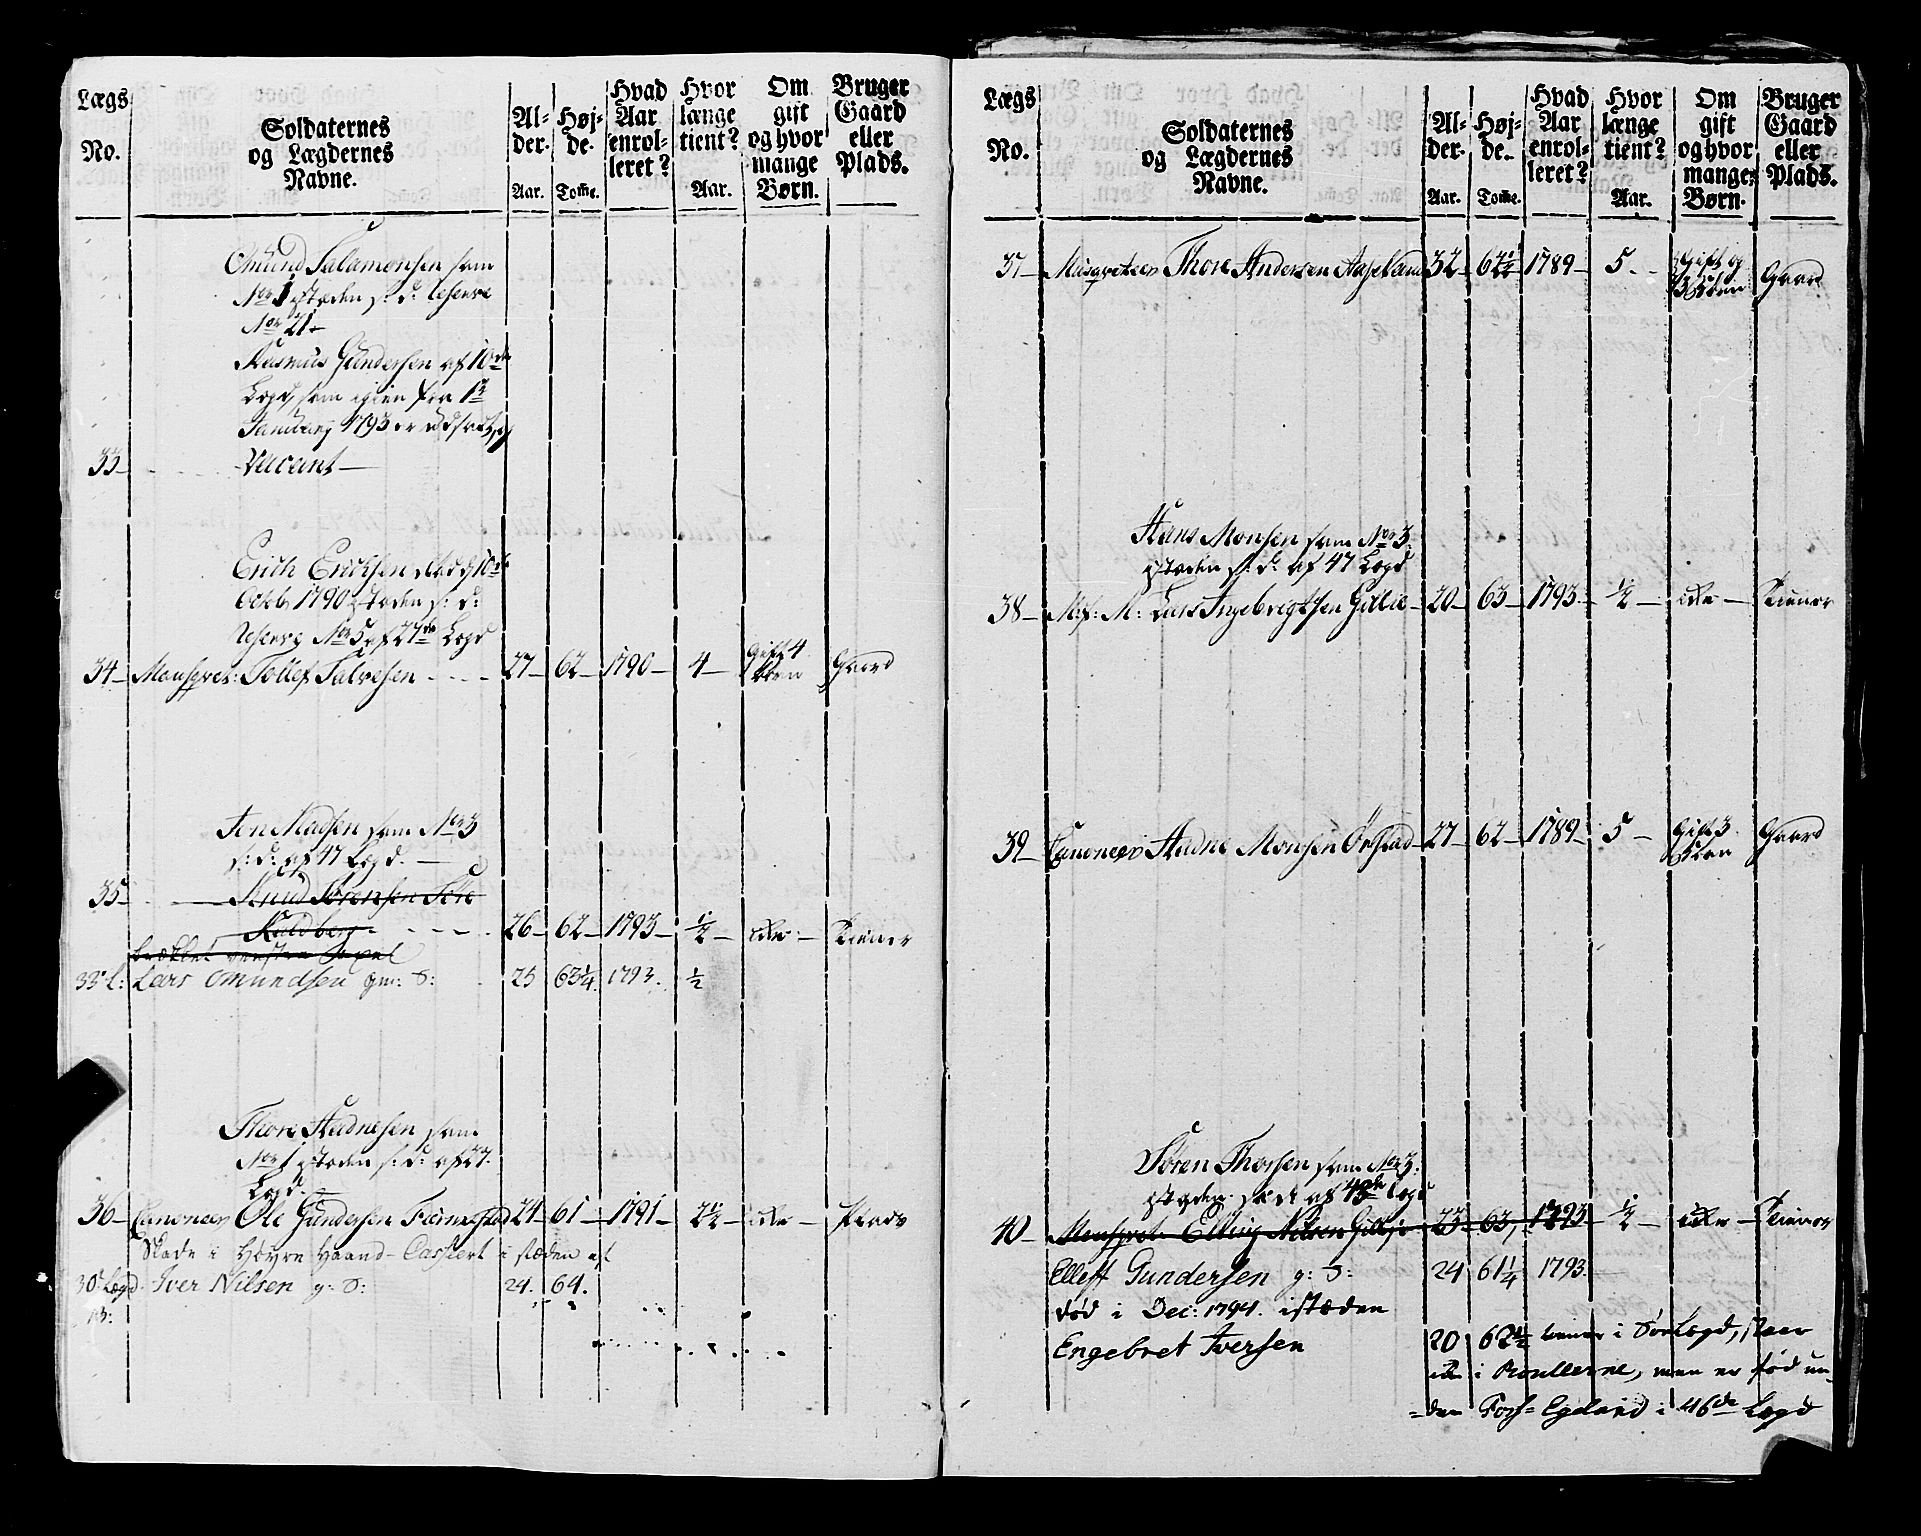 Lægs No.
Soldaternes og Lægdernes Navne.
Al-der. Aar.
Høj-de. Tome.
Hvad Aar enrol-leret?
Hvor længe tient? Aar.
Om gift og hvor mange Børn.
Bruger Gaard eller Plads.
Omund Salamonsen som
No 1 istæden s: d: reserve
No 21
Rasmus Gundersen af 10de
Lægd, som igien fra 1te
Januarij 1793 er udsat, og
33 Vacant
Erich Erichsen død 10de
Octbr 1790 istæden s: d:
reserve No 5 af 27de Lægd
34 Mousqvet: Tollef Salvesen 27 62 1790 4 Gift 4 Børn Gaard
Jon Madsen som No 3
s: d: af 47 Lægd.
35 Knud Sørensen
26 62 1793 1/2 ikke Tiener
brækket venstre
35 L: Lars Omundsen g: S: 25 63 1/4 1793. 1/2
Thore Audnesen som
No 1 istæden s: d: af 27.
Lægd.
36 Canoneer Ole Gundersen 24 61 1791 2 1/2 ikke Plads
Skade i Høyre Haand Cassert i stæden af
30 Lægd Iver Nilsen g: S: 24. 64.
Lægs No.
Soldaternes og Lægdernes Navne.
Al-der. Aar.
Høj-de. Tome.
Hvad Aar enrol-leret?
Hvor længe tient? Aar.
Om gift og hvor mange Børn.
Bruger Gaard eller Plads.
37 Musqveteer Thore Andersen 32 62 1/2 1789 5 Gift og 3 Børn Gaard
Hans Monsen som No 3
istæden s: d: af 47 Lægd
38 M: Lars Ingebregtsen Gillie 20 63 1793 1/2 ikke Tiener
39 Canoneer Audne Monsen Ørstad 27 62 1789 5 Gift 3 Børn Gaard
Søren Thorsen som No 3
istæden s: d: af 43de Lægd
40 Mousqvet: Elling Nilsen 23 63 1793 1/2 ikke Tiener
Elleff Gundersen g: S: 24 61 1/4 1793.
død i Dec: 1794. istæden
Engebret Iversen 20 62 1/2 tiener i Lægd, staar
ikke i Roullerne, men er fød un-
=der Egeland i 46de Lægd